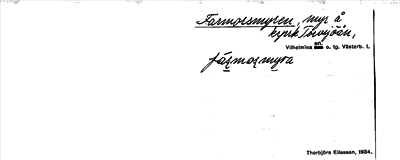 Farmorsmyren, myr å
Vilhelmina sn. o. tg. Västerb. l.
fármormyra
Thorbjörn Eliasson, 1934.